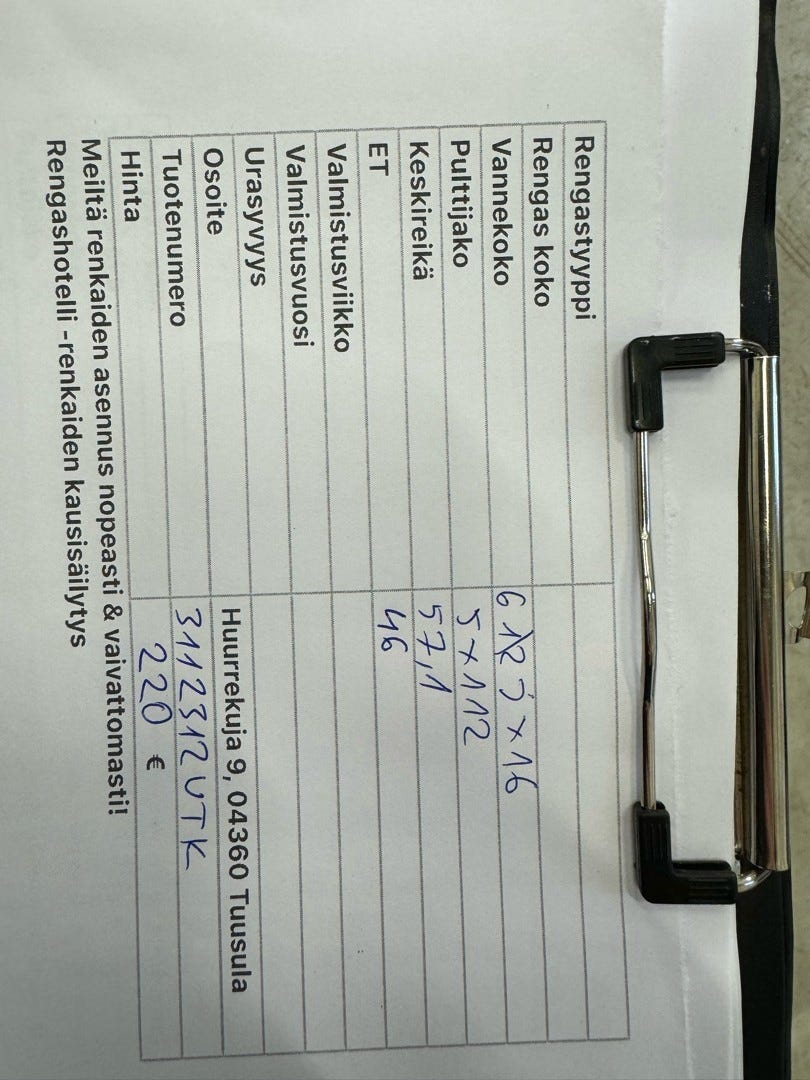 Rengastyyppi
Rengas koko
Vannekoko 6 1/2 J x 16
Pulttijako 5 x 112
Keskireikä 57,1
ET 46
Valmistusviikko
Valmistusvuosi
Urasyvyys
Osoite Huurrekuja 9, 04360 Tuusula
Tuotenumero 3112312UTK
Hinta 220 €
Meiltä renkaiden asennus nopeasti & vaivattomasti!
Rengashotelli -renkaiden kausisäilytys